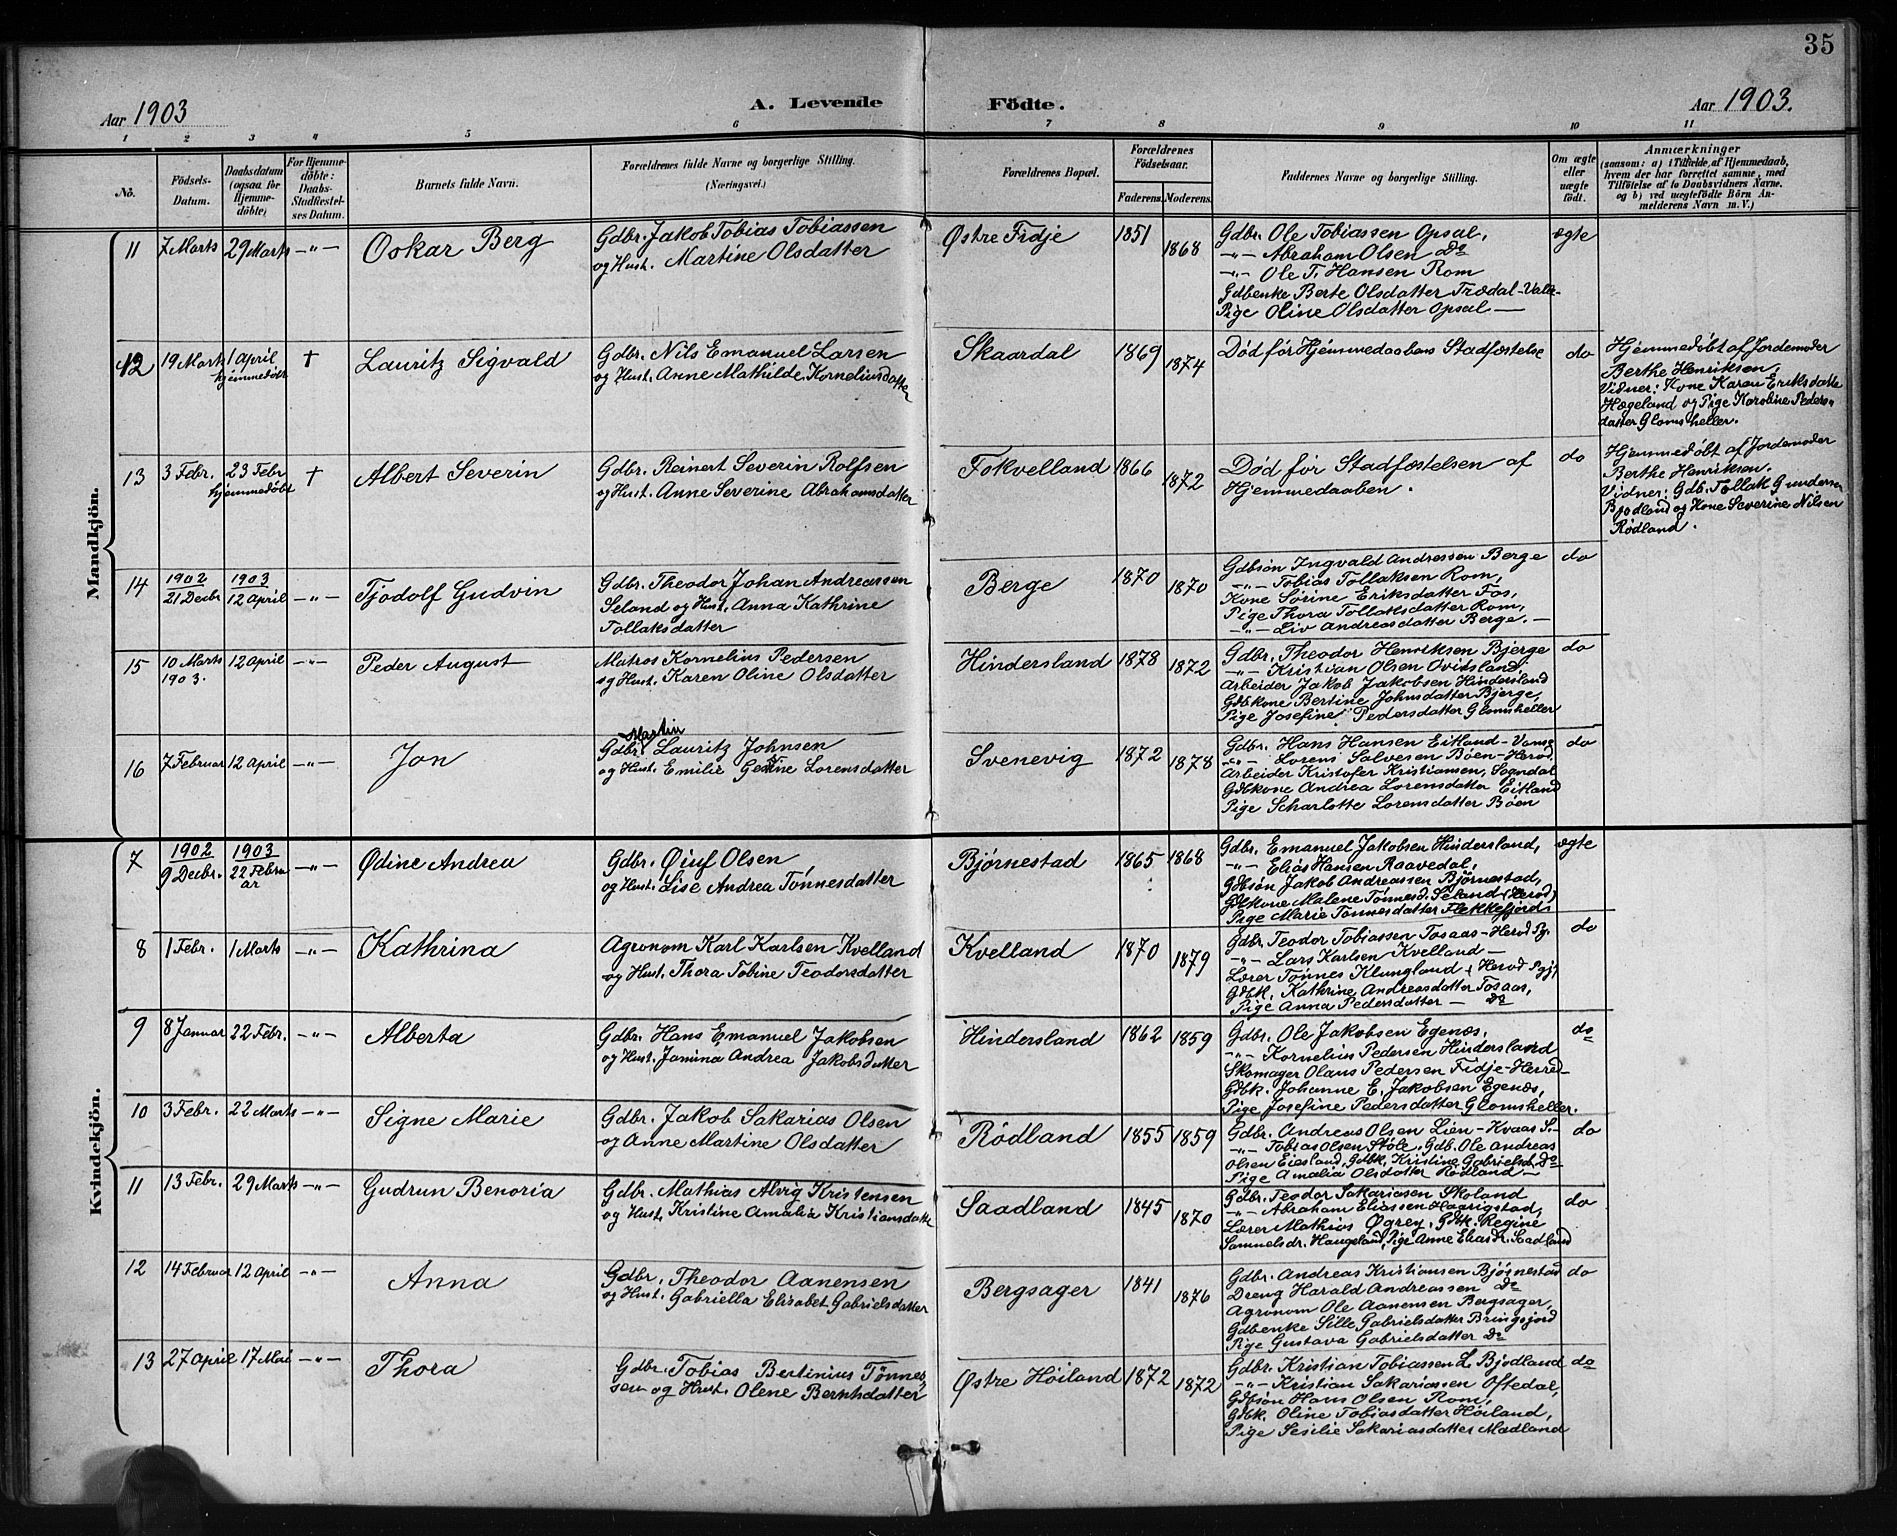 35
Aar 1903
A. Levende
Födte.
Aar 1903.
1 2 3 4 5 6 7 8 9 10 11
No.
Födsels-
Datum.
Daabsdatum
(ogsaa for
Hjemme-
döbte)
For Hjemme-
döbte:
Daabs-
Stadfæstel-
ses Datum.
Barnets fulde Navn.
Forældrenes fulde Navne og borgerlige Stilling.
(Næringsvei.)
Forældrenes Bopæl.
Forældrenes
Födselsaar.
Faderens. Moderens.
Faddernes Navne og borgerlige Stilling.
Om ægte
eller
uægte
födt.
Anmærkninger
(saasom: a) i Tilfælde af Hjemmedaab,
hvem der har forrettet samme, med
Tilföielse af to Daabsvidners Navne.
og b) ved uægtefödte Börn An-
melderens Navn m. V.)
Mandkjön.
11 7 Marts 29 Marts -"- Oskar Berg
Gdbr. Jakob Tobias Tobiassen
og Hust. Martine Olsdatter
Østre Fidje 1851 1868
Gdbr. Ole Tobiassen Opsal,
-"- Abraham Olsen do
-"- Ole T. Hansen Rom
Gdbenke Berte Olsdatter Trædal-Valse-
Pige Oline Olsdatter Opsal —
ægte
12 19 Marts 1 April
hjemmedøbt
† Lauritz Sigvald
Gdbr. Nils Emanuel Larsen
og Hust. Anne Mathilde Kornelius datter
Skaardal 1869 1874
Død før Hjemmedaabens Stadfæstelse
do
Hjemmedøbt af Jordemoder
Berthe Henriksen,
Vidner: Kone Karen Eriksdatter
Hægeland og Pige Karoline Peders-
datter Glomsheller.
13 3 Febr. 23 Febr
hjemmedøbt
† Albert Severin
Gdbr. Reinert Severin Rolfsen
og Hust. Anne Severine Abrahamsdatter
Fokvelland 1866 1872
Død før Stadfæstelsen af
Hjemmedaaben.
do
Hjemmedøbt af Jordemoder
Berthe Henriksen.
Vidner: Gdb. Tollak Gundersen
Bjodland og Kone Severine Nilsen
Rødland.
14 1902
21 Decbr
1903
12 April
-"- Tjodolf Gudvin
Gdbr. Theodor Johan Andreassen
Seland og Hust. Anna Kathrine
Tollaksdatter
Berge 1870 1870
Gdbsøn Ingvald Andressen Berge
-"- Tobias Tollaksen Rom,
Kone Sørine Eriksdatter Fos,
Pige Thora Tollaksdatter Rom,
-"- Liv Andreasdatter Berge. —
do
15 10 Marts
1903.
12 April -"- Peder August
Matros Kornelius Pedersen
og Hust. Karen Oline Olsdatter
Hindersland 1878 1872
Gdbr. Theodor Henriksen Bjerge
-"- Kristian Olsen Ovidsland,
Arbeider Jakob Jakobsen Hindersland
Gdbkone Bertine Johnsdatter Bjerge,
Pige Josefine Pedersdatter Glomsheller
do
16 7 Februar 12 April -"- Jon
Martin
Gdbr. Lauritz Johnsen
og Hust. Emilie Gesine Lorensdatter
Svenevig 1872 1878
Gdbr. Hans Hansen Eitland-Vanse
-"- Lorens Salvesen Bøen-Herod.
Arbeider Kristofer Kristiansen, Sogndal
Gdbkone Andrea Lorensdatter Eitland
Pige Scharlotte Lorensdatter Bøen
do
Kvindekjön.
7 1902
9 Decbr.
1903
22 Febru
ar
-"- Ødine Andrea
Gdbr. Øiuf Olsen
og Hust. Lise Andrea Tønnesdatter
Bjørnestad 1865 1868
Gdbr. Emanuel Jakobsen Hindersland,
-"- Elias Hansen Raavedal,
Gdbsøn Jakob Andreassen Bjørnestad,
Gdbkone Malene Tønnesd. Seland (Herod)
Pige Marie Tønnesdatter Flekkefjord.
ægte
8 1 Febr. 1 Marts -"- Kathrina
Agronom Karl Karlsen Kvelland
og Hust. Thora Tobine Teodorsdatter
Kvelland 1870 1879
Gdbr. Teodor Tobiassen Tosaas-Herod Pg.
-"- Lars Karlsen Kvelland —
Lærer Tønnes Klungland, Herod Pgj.
Gdbk. Kathrine Andreasdatter Tosaas,
Pige Anna Pedersdatter — do
do
9 8 Januar 22 Febr. -"- Alberta
Gdbr. Hans Emanuel Jakobsen
og Hust. Jamina Andrea Jakobsdatter
Hindersland 1862 1859
Gdbr. Ole Jakobsen Egenæs.
-"- Kornelius Pedersen Hindersland
Skomager Olaus Pedersen Fidje-Herred-
Gdbk. Johanne E. Jakobsen Egenæs,
Pige Josefine Pedersdatter Glomsheller.
do
10 3 Febr. 22 Marts -"- Signe Marie
Gdbr. Jakob Sakarias Olsen
og Anne Martine Olsdatter
Rødland 1855 1859
Gdbr. Andreas Olsen Lien-Kvaas S.-
-"- Tobias Olsen Støle. Gdb. Ole Andreas
Olsen Eiesland, Gdbk. Kristine Gabrielsd. do
Pige Amalia Olsdatter Rødland —
do
11 13 Febr. 29 Marts -"- Gudrun Benoria
Gdbr. Mathias Alvig Kristensen
og Hust. Kristine Amalia Kristiansdatte
Saadland 1845 1870
Gdbr. Teodor Sakariasen Skoland
-"- Abraham Eliassen Haarigstad,
Lærer Mathias Øgrey. Gdbk. Regine
Samuelsdr. Haugeland, Pige Anne Eliasdr. Saadland
do
12 14 Februar 12 April -"- Anna
Gdbr. Theodor Aanensen
og Hust. Gabriella Elisabet Gabrielsdatter
Bergsager 1841 1876
Gdbr. Andreas Kristiansen Bjørnestad
Dreng Harald Andreassen do
Agronom Ole Aanensen Bergsager,
Gdbenke Sille Gabrielsdatter Bringsjord
Pige Gustava Gabrielsdatter do
do
13 27 April 17 Mai -"- Thora
Gdbr. Tobias Bertinius Tønnes-
sen og Hust. Olene Berntsdatter
Østre Høiland 1872 1872
Gdbr. Kristian Tobiassen L. Bjodland
-"- Kristian Sakariassen Oftedal,
Gdbsøn Hans Olsen Rom,
Gdbk. Oline Tobiasdatter Høiland,
Pige Sesilie Sakariasdatter Madland
do